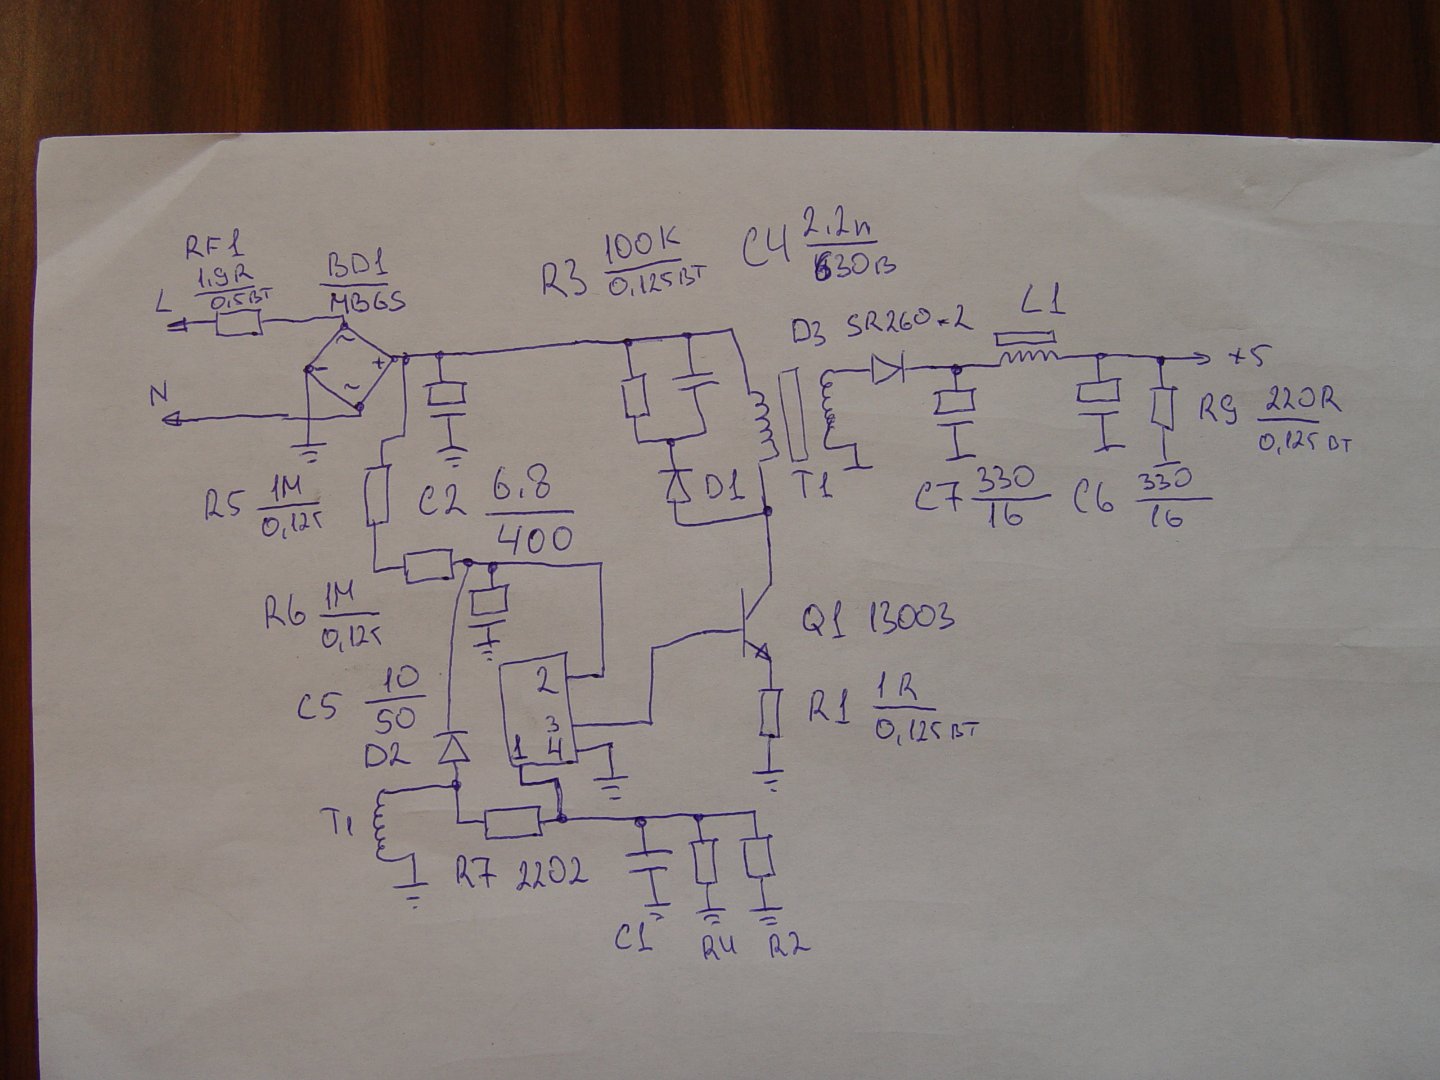 RF1
1,9R
0,5ВТ
L
BD1
MB6S
R3 100К
0,125ВТ
C4 2.2n
630В
N
D3 SR260*2
L1
+5
R9 220R
0,125ВТ
+
-
~
~
R5 1М
0,125
C2 6,8
400
D1
T1
C7 330
16
C6 330
16
R6 1М
0,125
Q1 13003
C5 10
50
2
3
1 4
R1 1R
0,125ВТ
D2
T1
R7 2202
C1
R4
R2